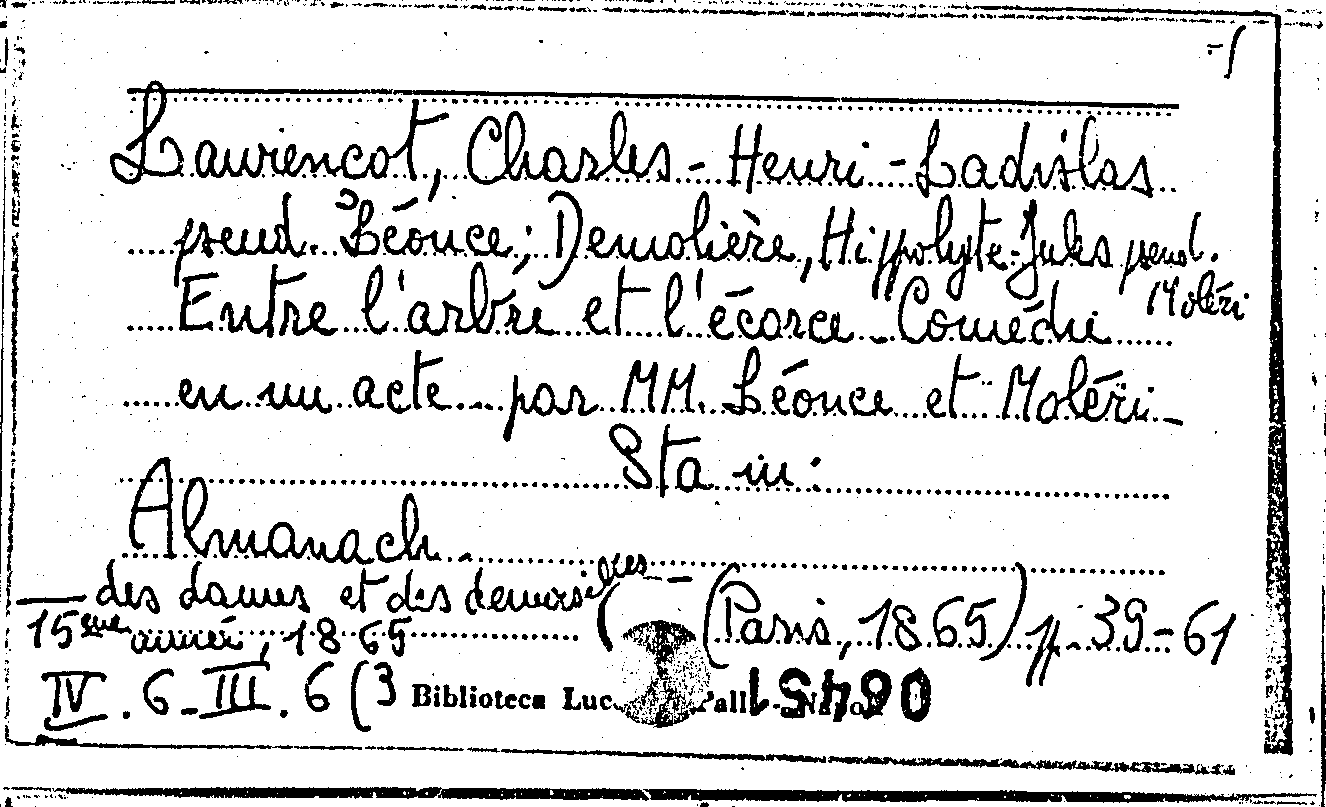 Laurencot, Charles-Henri-Ladislas
pseud. Léonce; Demolière, Hippolyte-Jules pseud.
Moléri
Entre l'arbre et l'écorce - Comédie
en un acte - par MM. Léonce et Moléri -
Sta in:
Almanach
des dames et des demoiselles - (Paris, 1865) pp. 39-61
15eme année, 1865
IV. 6 - III. 6 (3
Biblioteca Luc